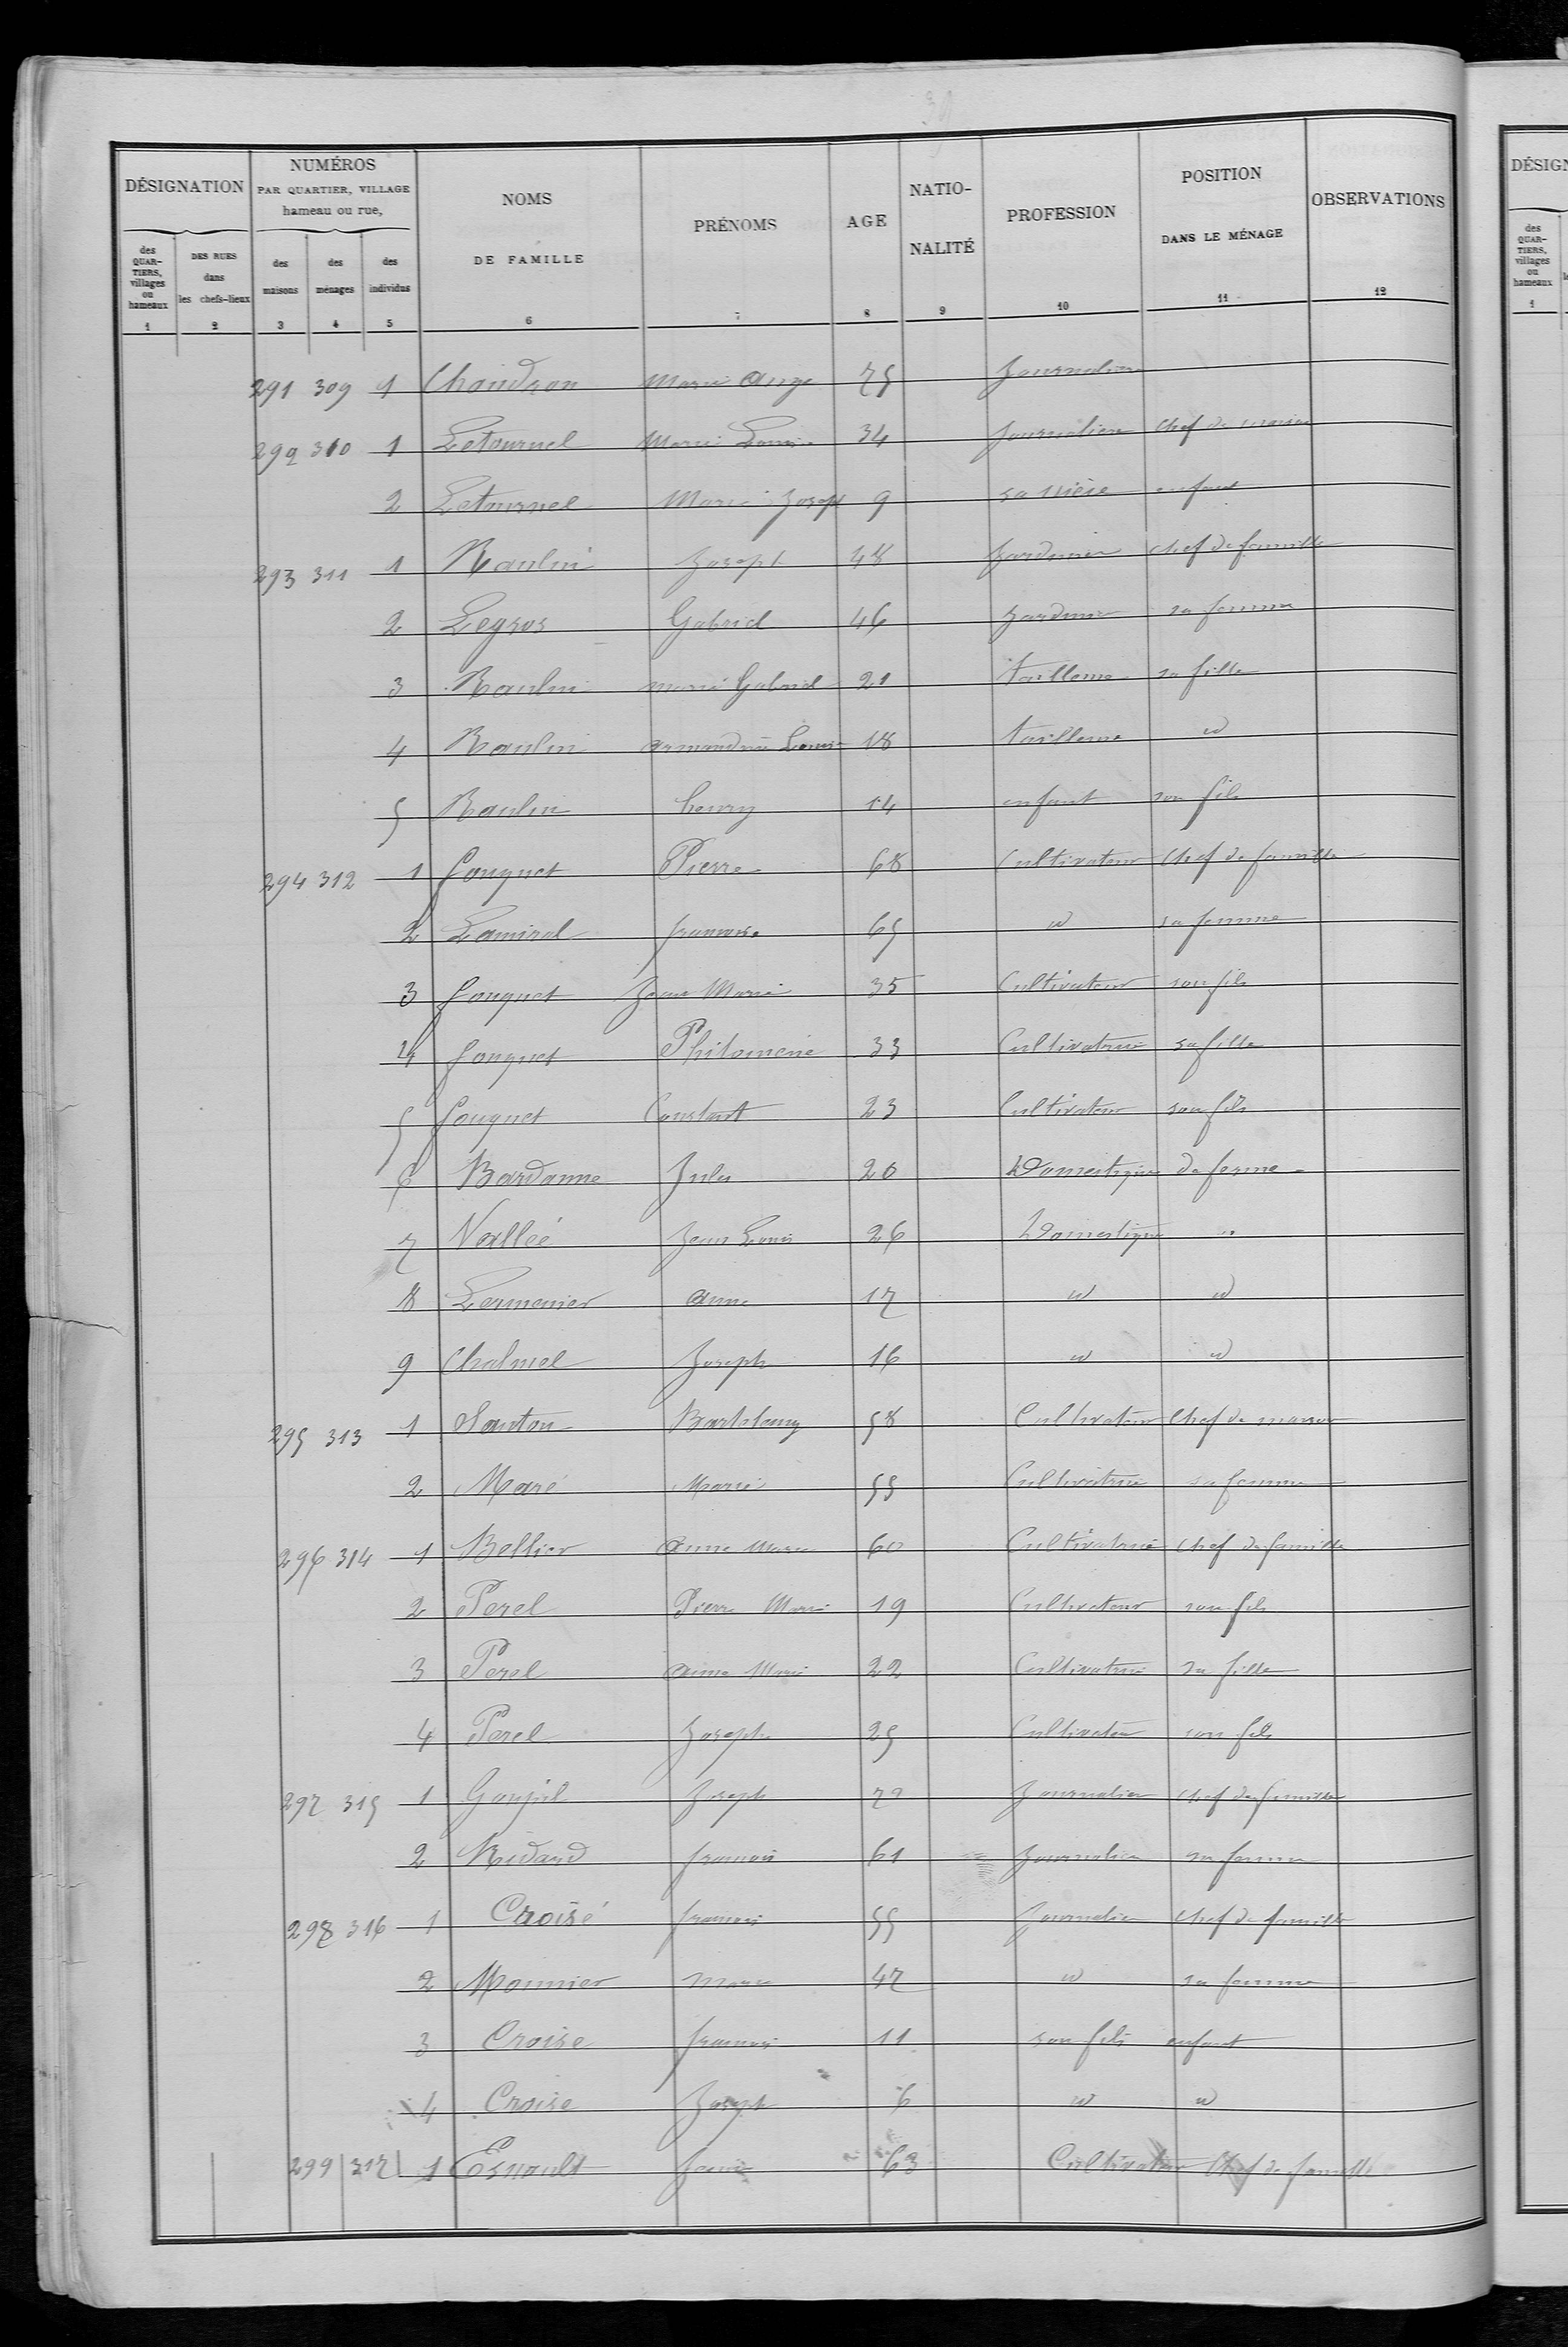 39
DÉSIGNATION NUMÉROS PAR QUARTIER, VILLAGE hameau ou rue, NOMS DE FAMILLE PRÉNOMS AGE NATIO-NALITÉ PROFESSION POSITION DANS LE MÉNAGE OBSERVATIONS
des QUAR-TIERS, villages ou hameaux DES RUES dans les chefs-lieux des maisons des ménages des individus
1 2 3 4 5 6 7 8 9 10 11 12
291 309 1 Chondron Marie Ange 75 Journalière
292 310 1 Letournel Marie Louise 34 Journalière chef de maison
2 Letournel Marie Joseph 9 sa nièce enfant
293 311 1 Raulin Joseph 48 Jardinier chef de famille
2 Legros Gabriel 46 Jardinier sa femme
3 Raulin marie Gabriel 21 tailleuse sa fille
4 Raulin armandine Louise 18 tailleuse id
5 Raulin henry 14 enfant son fils
294 312 1 Fouquet Pierre 68 Cultivateur chef de famille
2 Lamiral françoise 65 id sa femme
3 Fouquet Jean Marie 35 Cultivateur son fils
4 Fouquet Philomène 33 Cultivatrice sa fille
5 Fouquet Constant 23 Cultivateur son fils
6 Bardanne Jules 20 Domestique de ferme
7 Vallée Jean Louis 26 Domestique "
8 Lermenier Anne 17 id id
9 Chalmel Joseph 16 id id
295 313 1 Santon Bartelemy 58 Cultivateur Chef de maison
2 Maré Marie 55 Cultivatrice sa femme
296 314 1 Bellier Anne Marie 60 Cultivatrice chef de famille
2 Perel Pierre Marie 19 Cultivateur son fils
3 Perel Anne Marie 22 Cultivatrice sa fille
4 Perel Joseph 25 Cultivateur son fils
297 315 1 Goupil Joseph 72 Journalier chef de famille
2 Ridard françoise 61 Journalière sa femme
298 316 1 Croisé françois 55 Journalier chef de famille
2 Monnier marie 47 id sa femme
3 Croise françois 11 son fils enfant
4 Croise Joseph 6 id id
299 317 1 Esnault 63 Cultivateur Chef de famille
DÉSIGN
des QUAR-TIERS, villages ou hameaux
1